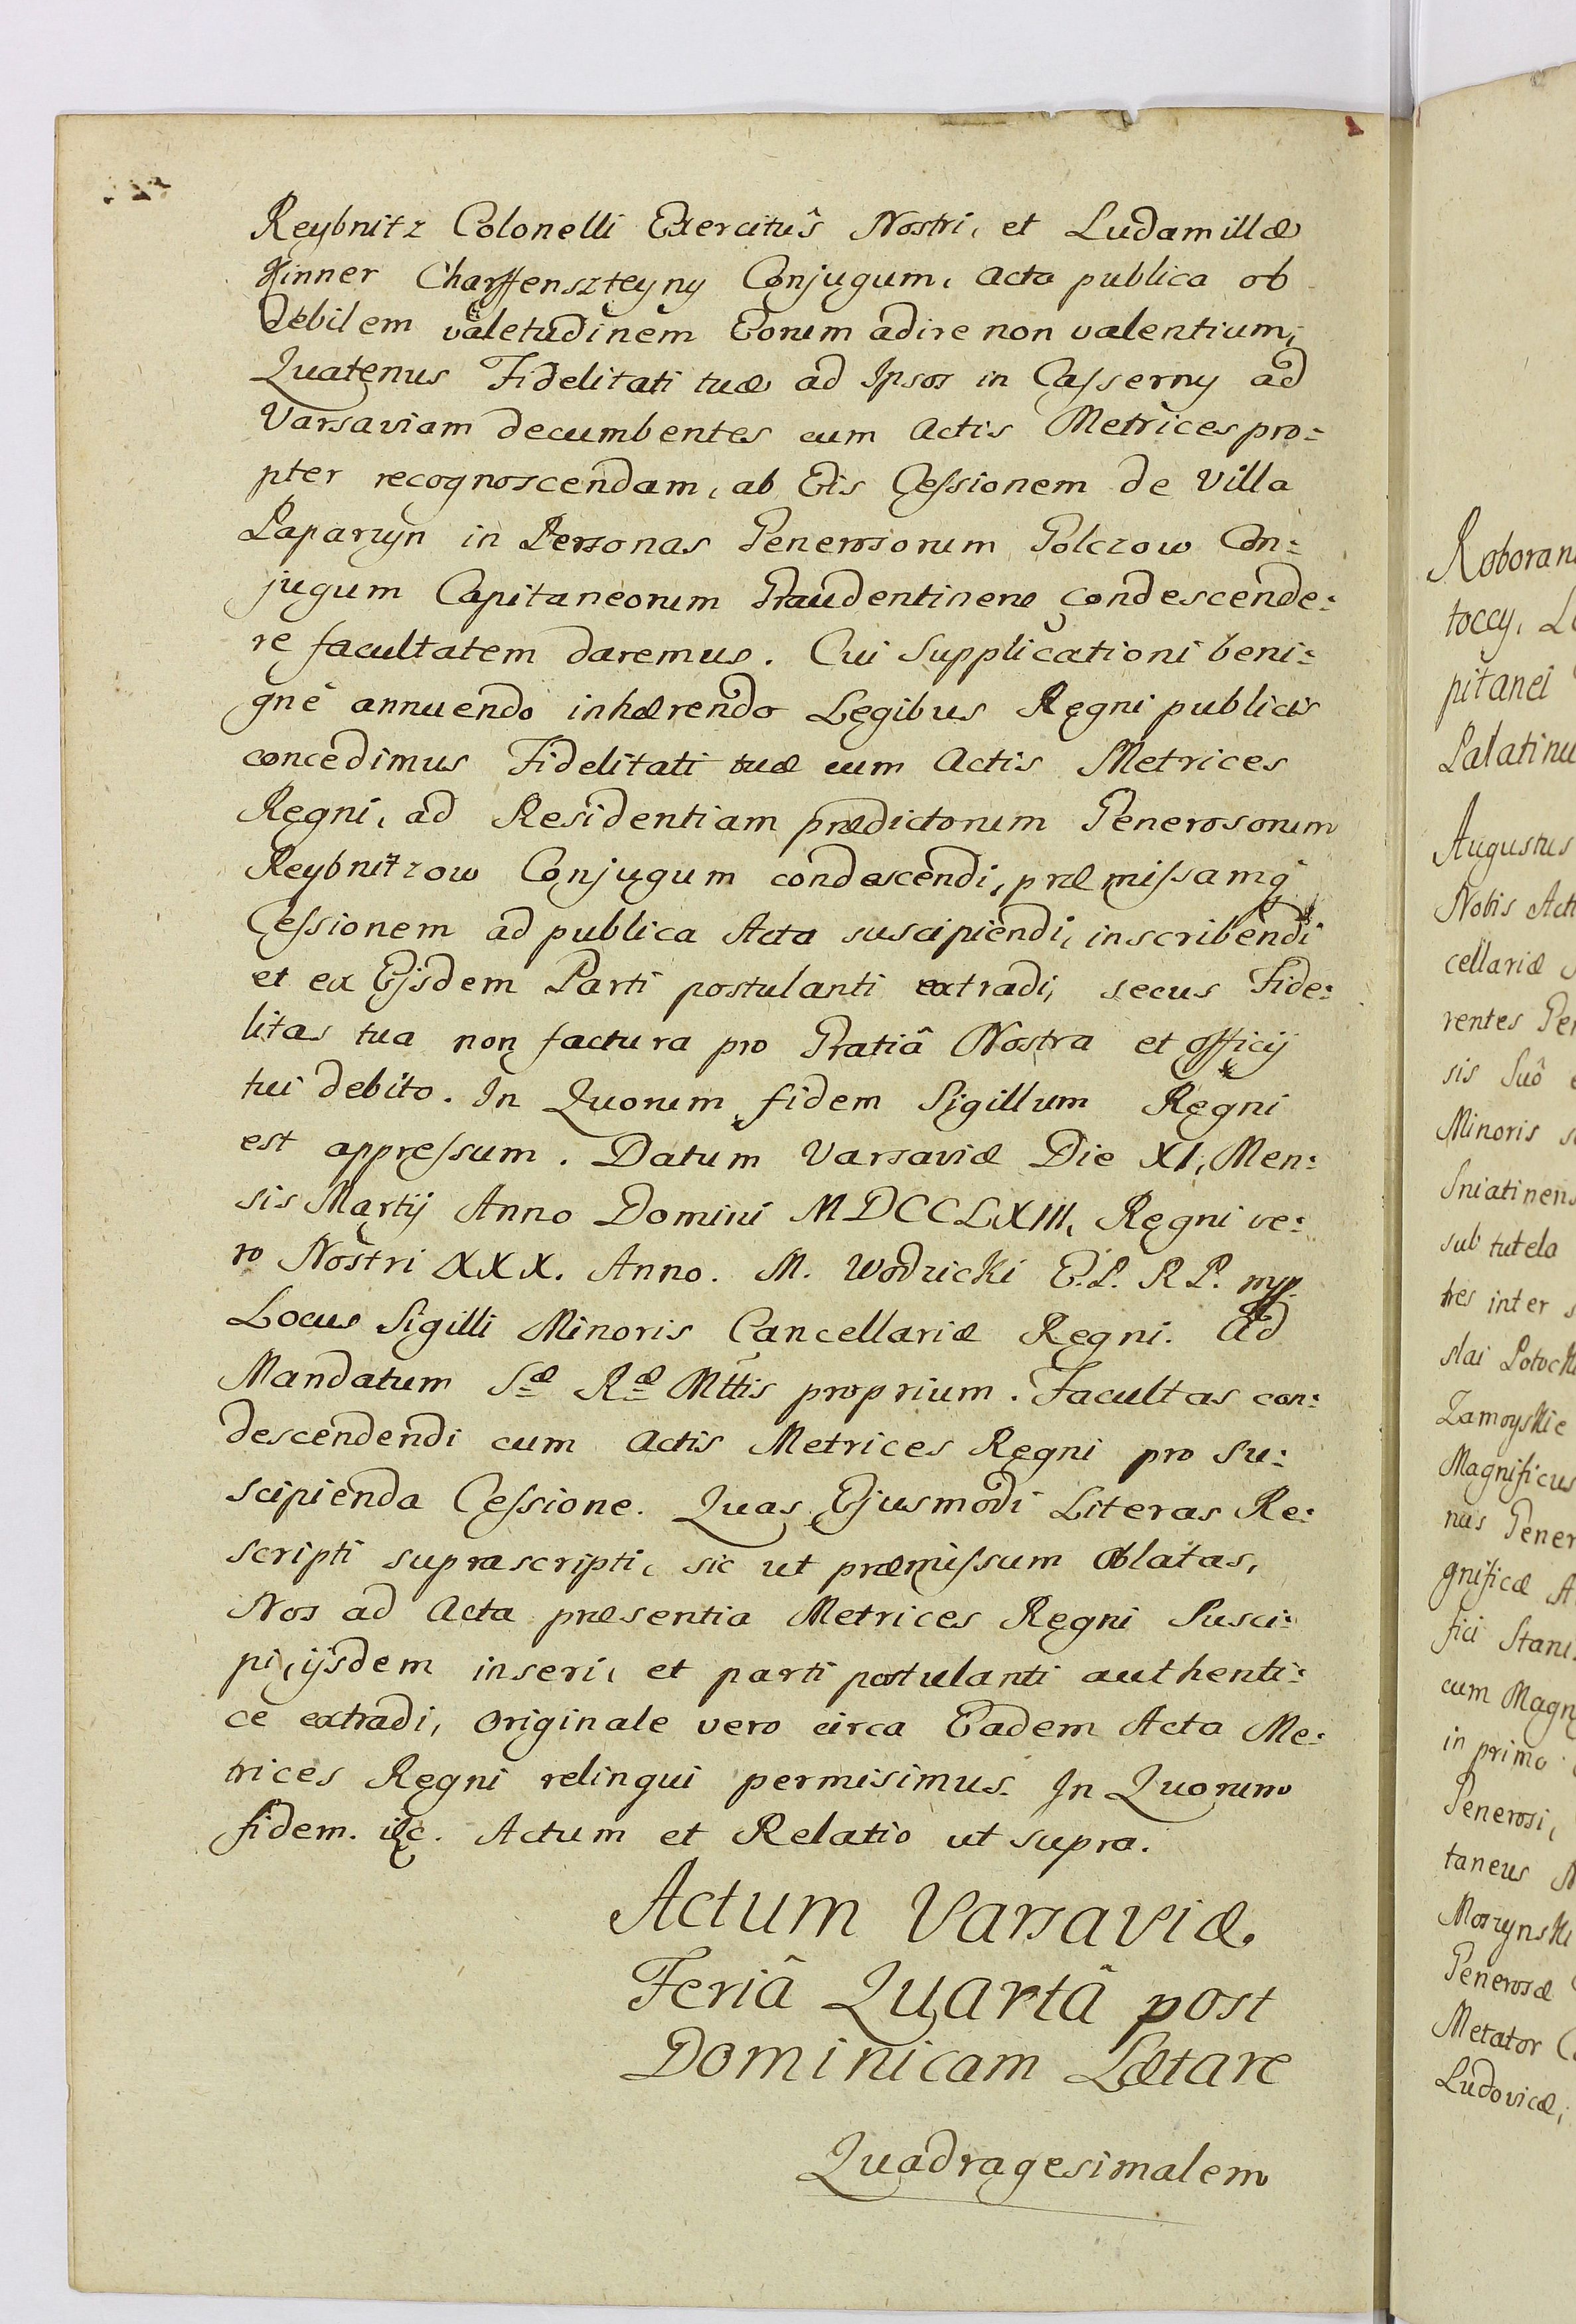 Reybnitz Colonelli Exercitûs Nostri, et Ludamillæ
Hinner Charffenszteyny Conjugum, acta publica ob
debilem valetudinem Eorum adire non valentium,
Quatenus Fidelitati tuæ ad Ipsos in Casserny ad
Varsaviam decumbentes cum Actis Metrices pro=
pter recognoscendam, ab Eis Cessionem de Villa
Paparzyn in Personas Generosorum Golczow Con=
jugum Capitaneorum Graudentinens condescende=
re facultatem daremus. Cui Supplicationi beni=
gnè annuendo inhærendo Legibus Regni publicis
concedimus Fidelitati tuæ cum Actis Metrices
Regni, ad Residentiam prædictorum Generosorum
Reybnitzow Conjugum condescendi, præmissamq
Cessionem ad publica Acta suscipiendi, inscribendi
et ex Ejsdem Parti postulanti extradi, secus Fide=
litas tua non factura pro Gratiâ Nostra et officij
tui debito. In Quorum fidem Sigillum Regni
est appressum. Datum Varsaviæ Die XI, Men=
sis Martij Anno Domini MDCCLXIII, Regni ve=
ro Nostri XXX. Anno. M. Wodzicki E.P. R P. mp.
Locus Sigilli Minoris Cancellariæ Regni. Ad
Mandatum Sæ Ræ Mttis proprium. Facultas con=
descendendi cum Actis Metrices Regni pro su=
scipienda Cessione. Quas Ejusmodi Literas Re=
scripti suprascripti, sic ut præmissum Oblatas,
Nos ad Acta præsentia Metrices Regni Susci=
pi, ijsdem inseri, et parti postulanti authenti=
ce extradi, Originale vero circa Eadem Acta Me=
trices Regni relinqui permisimus. In Quorum
fidem. etc. Actum et Relatio ut supra.
Actum Varsaviæ
Feriâ Quartâ post
Dominicam Lætare
Quadragesimalem
Roboran
toccy, L
pitanei
Palatinu
Augustus
Nobis Act
cellariæ
rentes Ge
sis Suô
Minoris
Sniatinens
sub tutela
tres inter
slai Potock
Zamoyskie
Magnificus
nus Gener
gnificæ
fici Stani
cum Magn
in primo
Generosi,
taneus
Moszynski
Generosæ
Metator
Ludovicæ,